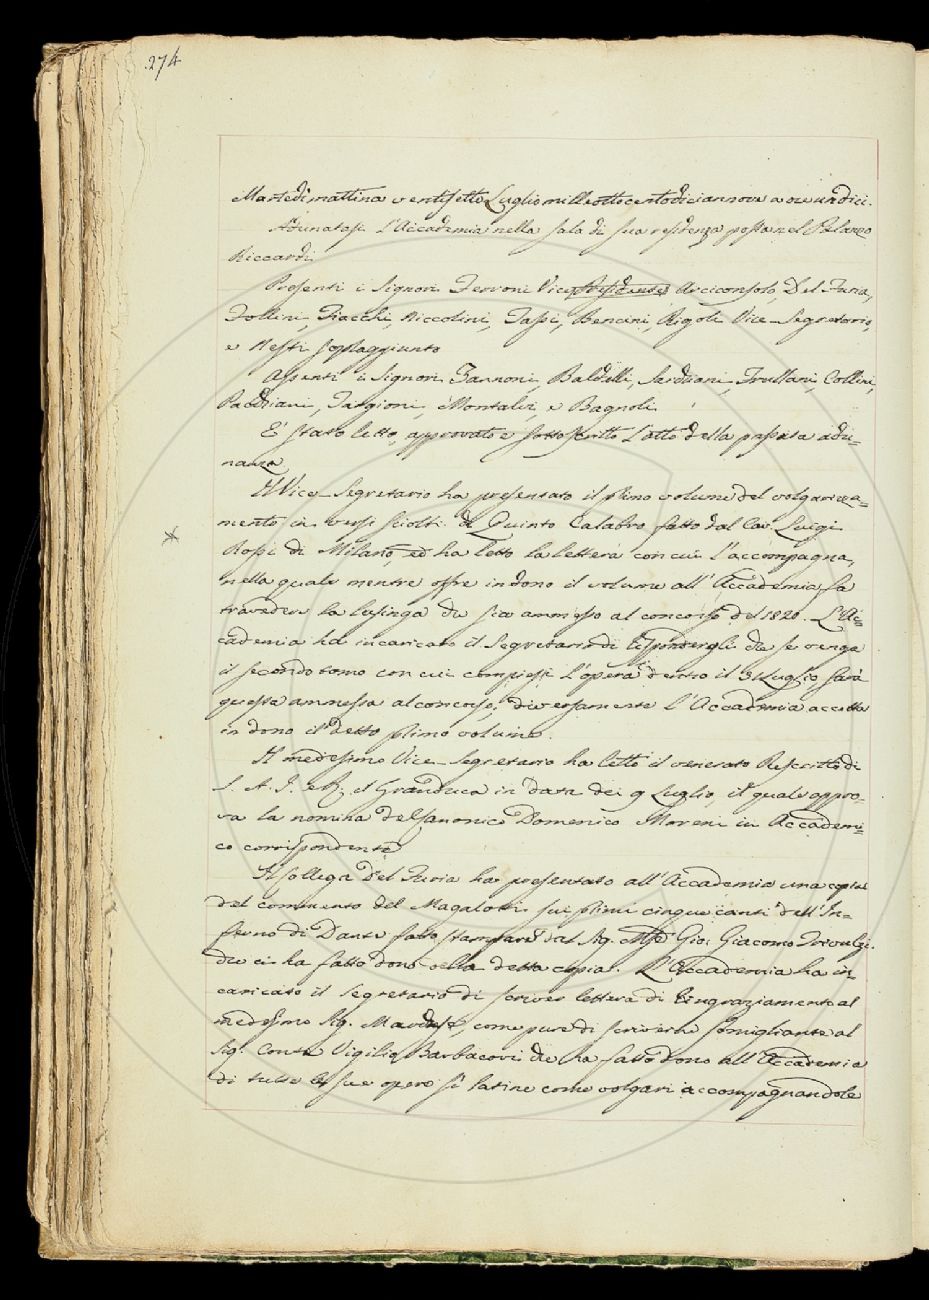 274
Martedi mattina ventisette Luglio milleottocentodiciannove a ore undici.
Adunatasi l'Accademia nella sala di sua residenza posta nel Palazzo
Riccardi
Presenti i Signori Ferroni Vice Presidente Arciconsolo, Del Furia,
Follini, Fiacchi, Niccolini, Tassi, Bencini, Rigoli Vice-Segretario,
e Nesti sopraggiunto
Assenti i Signori Zannoni, Baldelli, Sarchiani, Frullani, Collini,
Pacchiani, Targioni, Montalvi, e Bagnoli.
E' stato letto, approvato e sottoscritto l'atto della passata adu=
nanza
Il Vice-Segretario ha presentato il primo volume del volgarizza=
*
mento in versi sciolti di Quinto Calabro fatto dal Cav. Luigi
Rossi di Milano, ed ha letto la lettera con cui l'accompagna,
nella quale mentre offre in dono il volume all'Accademia fa
travedere la lusinga di sia ammesso al concorso del 1820. L'Ac=
cademia ha incaricato il Segretario di rispondergli che se venga
il secondo tomo con cui compiesi l'opera dentro il 31 Luglio, sarà
questa ammessa al concorso; diversamente l'Accademia accetta
in dono il detto primo volume.
Il medesimo Vice-Segretario ha letto il venerato Rescritto di
S. A. I. e R. il Granduca in data dei 9 Luglio, il quale appro=
va la nomina del Canonico Domenico Moreni in Accademi=
co corrispondente
Il Collega Del Furia ha presentato all'Accademia una copia
del commento del Magalotti sui primi cinque canti dell'In=
ferno di Dante fatto stampare dal Sig. Mse Gio: Giacomo Trivulzi
che ci ha fatto dono della detta copia. L'Accademia ha in=
caricato il Segretario di scriver lettera di ringraziamento al
medesimo Sig. Marchese, come pure di scriverne somigliante al
Sigr. Conte Vigilio Barbacovi che ha fatto dono all'Accademia
di tutte le sue opere sì latine come volgari accompagnandole